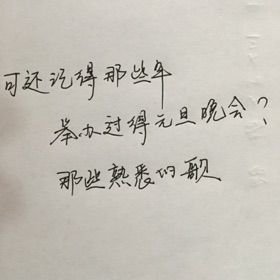 可还记得那些年
举办过得元旦晚会？
那些熟悉的歌